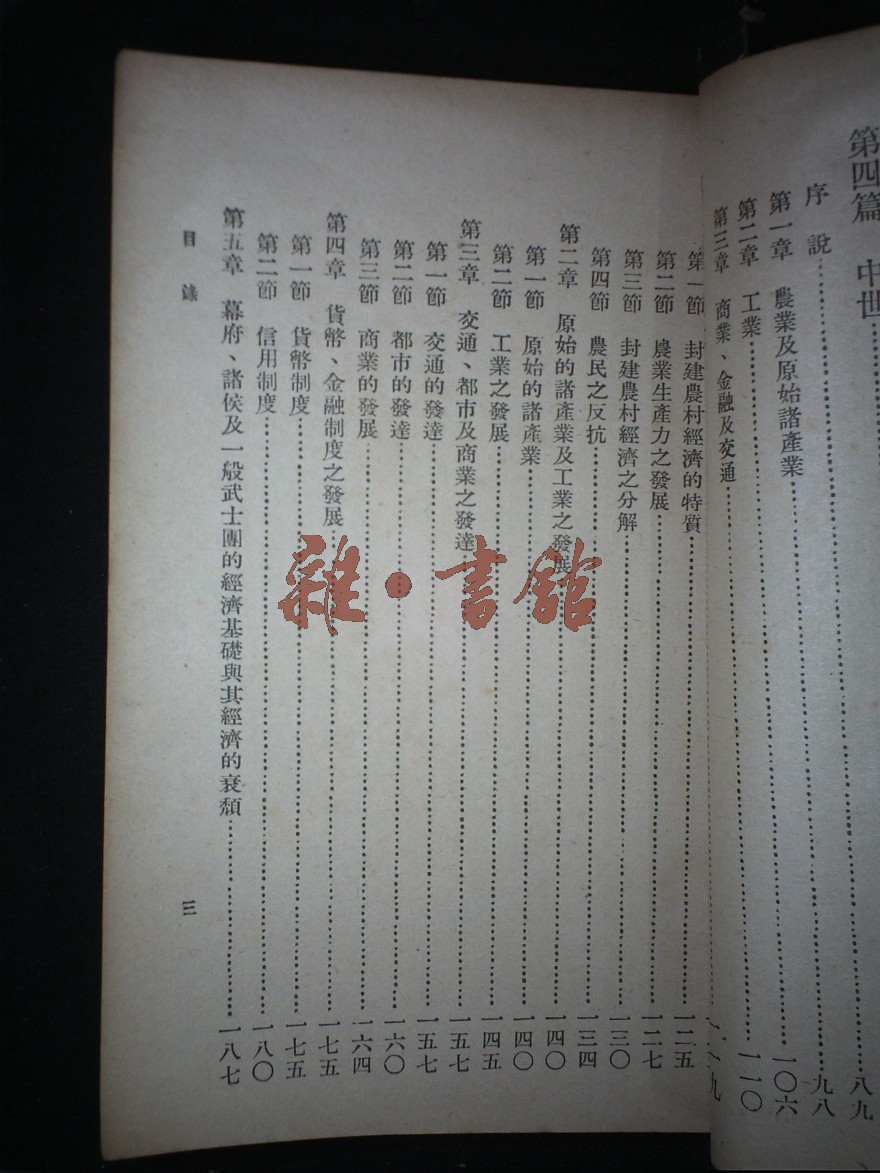 第四篇　中世……八九
序　說……九八
第一章　農業及原始諸產業……一〇六
第二章　工業……一一〇
第三章　商業、金融及交通……一一九
第一節　封建農村經濟的特質……一二五
第二節　農業生產力之發展……一二七
第三節　封建農村經濟之分解……一三〇
第四節　農民之反抗……一三四
第二章　原始的諸產業及工業之發展……一四〇
第一節　原始的諸產業……一四〇
第二節　工業之發展……一四五
第三章　交通、都市及商業之發達……一五七
第一節　交通的發達……一五七
第二節　都市的發達……一六〇
第三節　商業的發展……一六四
第四章　貨幣、金融制度之發展……一七五
第一節　貨幣制度……一七五
第二節　信用制度……一八〇
第五章　幕府、諸侯及一般武士團的經濟基礎與其經濟的衰頹……一八七
目錄
三
雜·書館